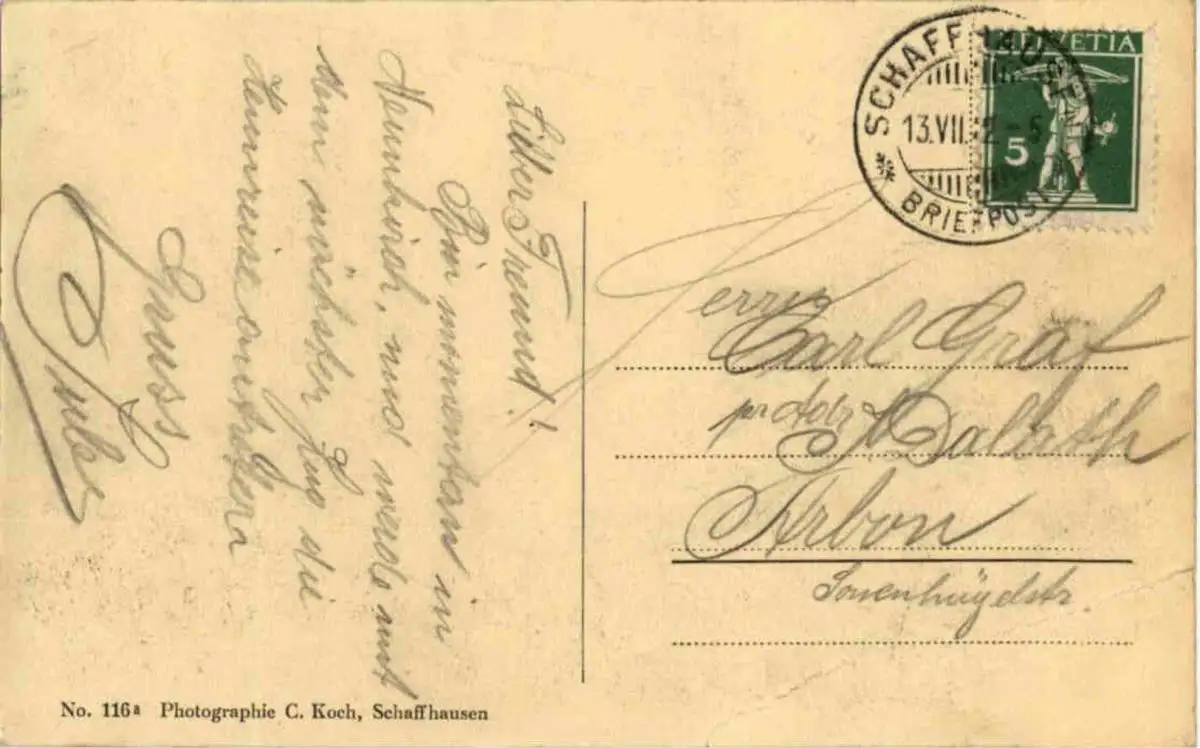 Lieber Freund!
Bin momentan in
Neunkirch, und werde mit
dem nächster Zug die
Heimreise antreten
Gruss
SCHAFFHAUSEN
13.VII.12-5
BRIEFPOST
HELVETIA
5
Herrn
Carl Graf
pr Adr
Arbon
Sonenhügelstr.
No. 116a Photographie C. Koch, Schaffhausen